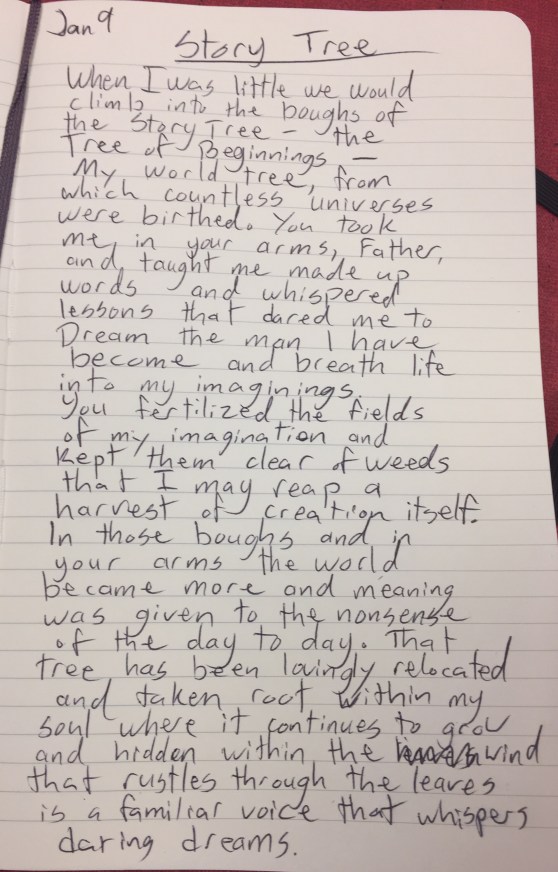 Jan 9
Story Tree
When I was little we would
climb into the boughs of
the Story Tree - the
Tree of Beginnings -
My world tree, from
which countless universes
were birthed. You took
me, in your arms, Father,
and, taught me made up
words and whispered
lessons that dared me to
Dream the man I have
become and breath life
into my imaginings.
You fertilized the fields
of my imagination and
kept them clear of weeds
that I may reap a
harvest of creation itself.
In those boughs and in
your arms the world
became more and meaning
was given to the nonsense
of the day to day. That
tree has been lovingly relocated
and taken root within my
soul where it continues to grow
and hidden within the wind
that rustles through the leaves
is a familiar voice that whispers
daring dreams.